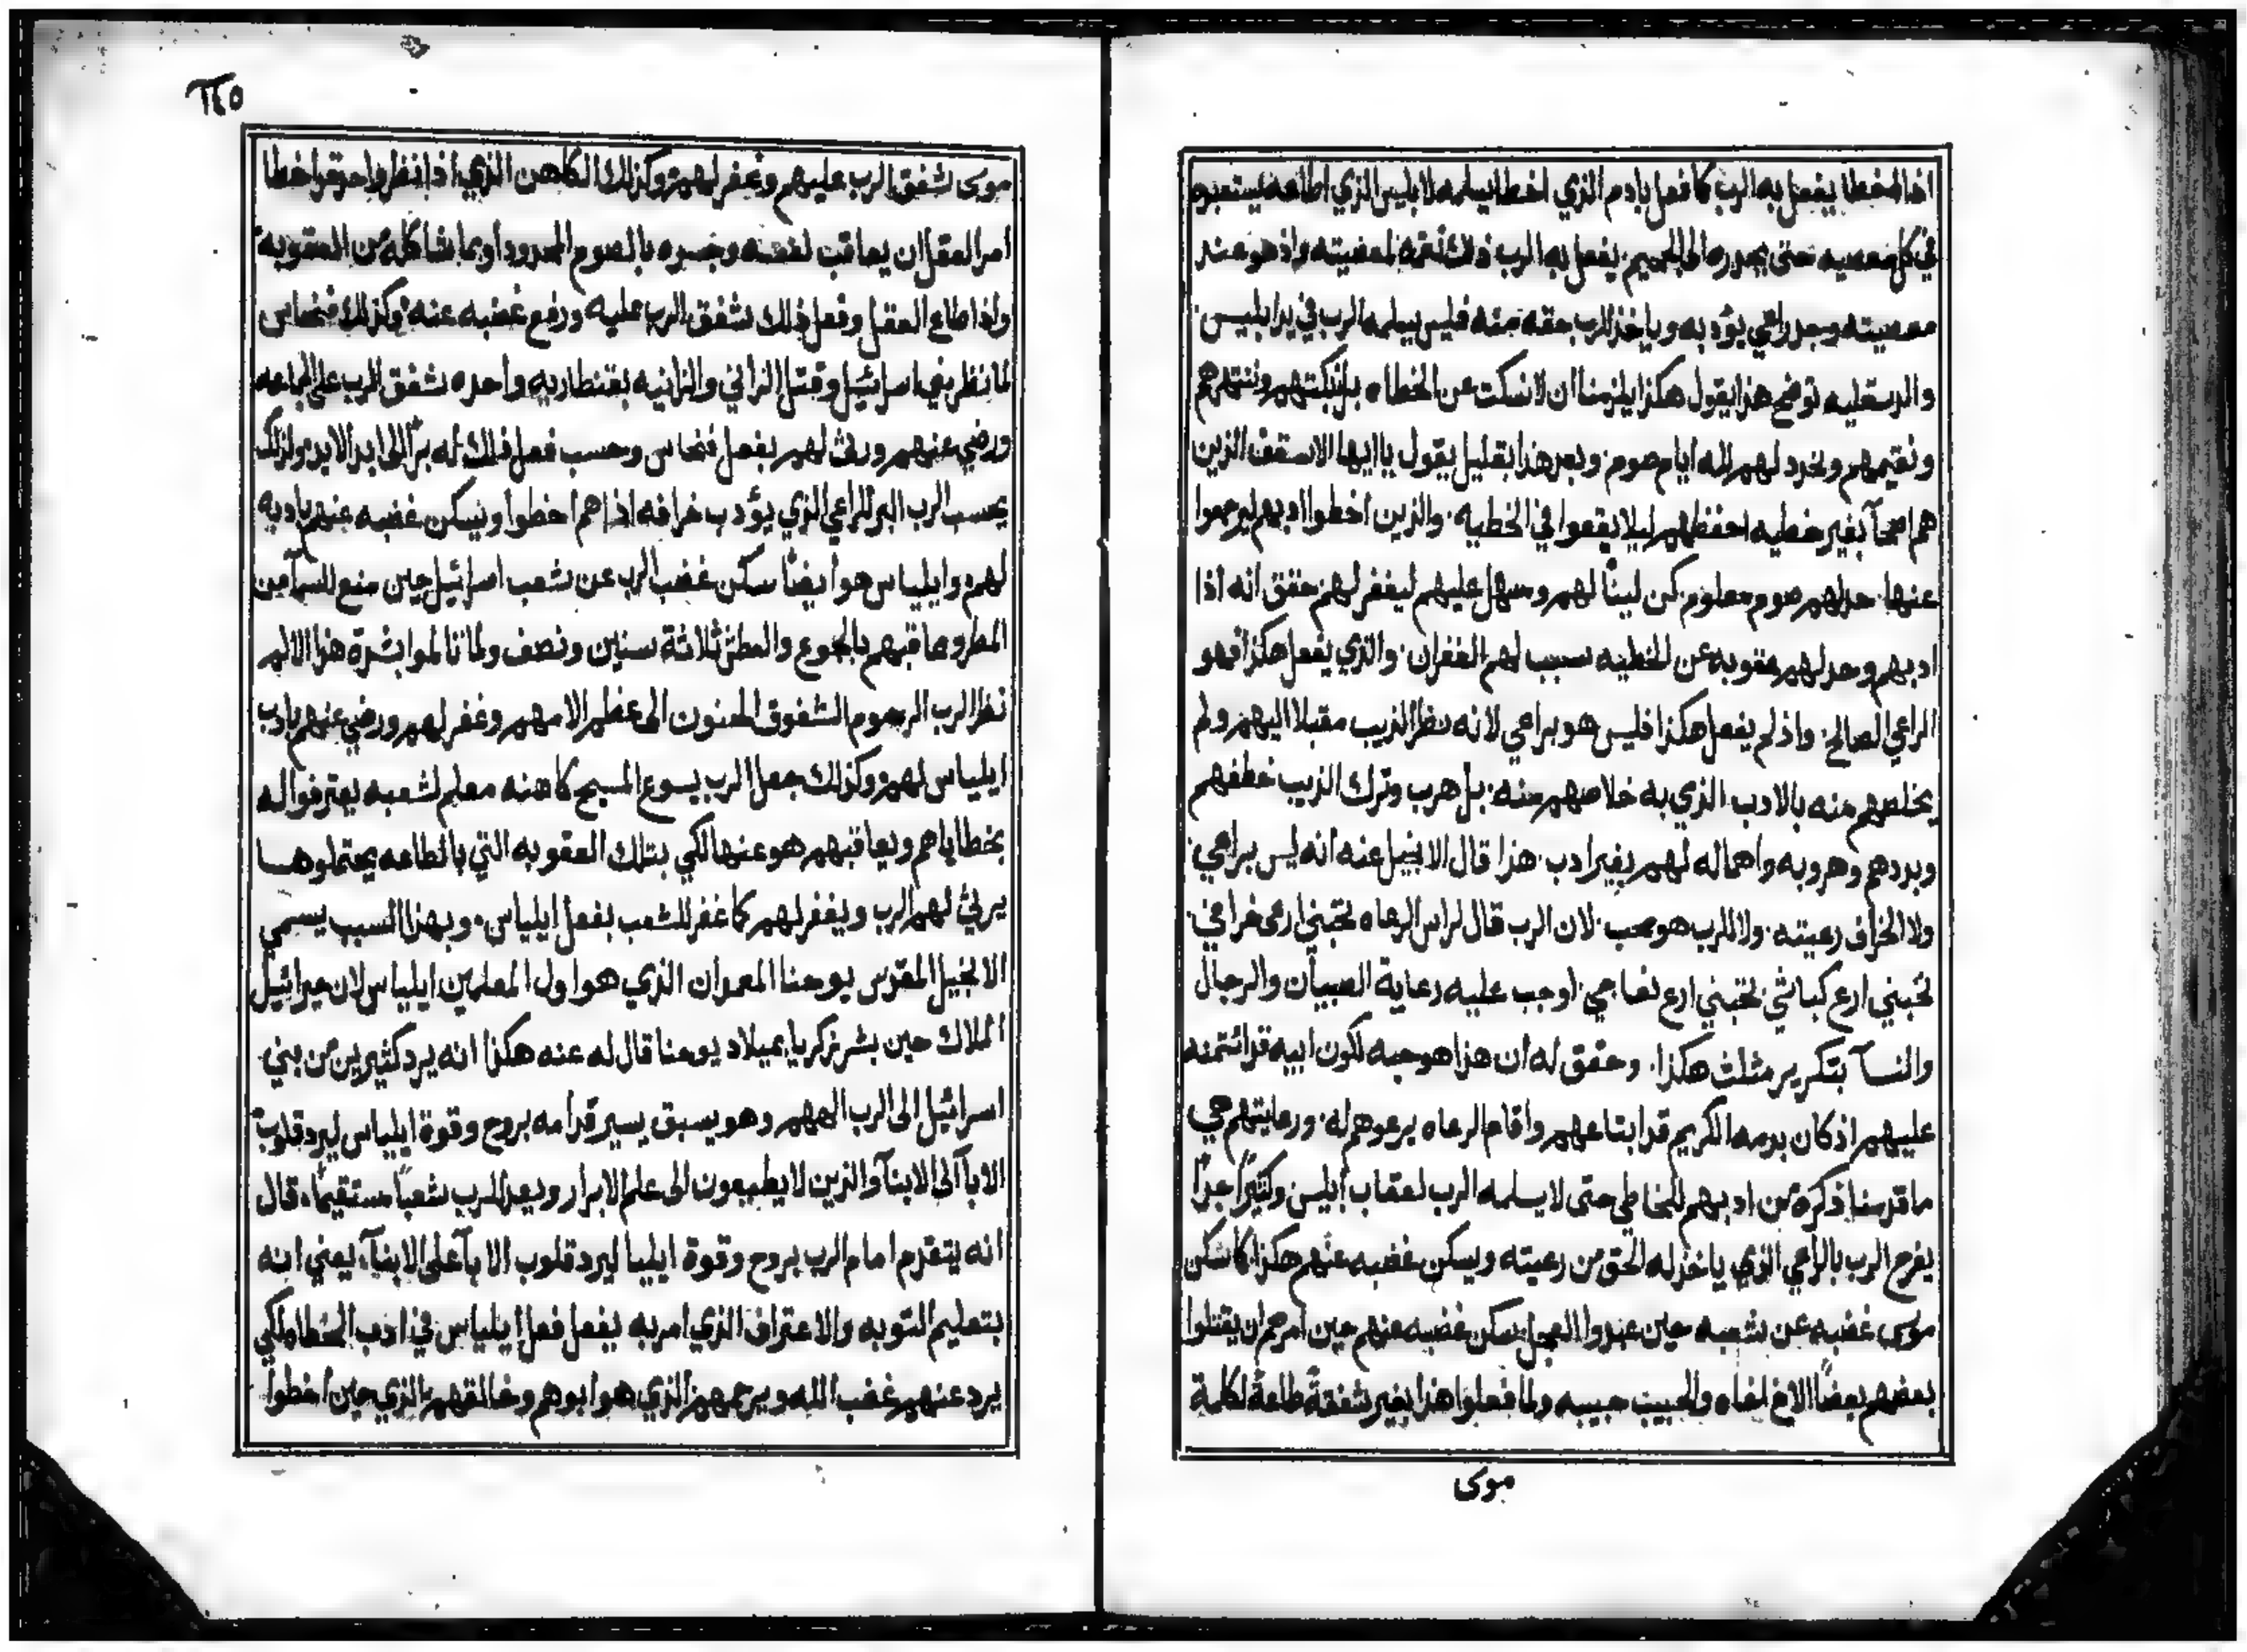 اخا لمخطا يفعل به الرب كما فعل بادم الذي اخطا يسلمه لابليس الذي اطاعه ليستعبده
في كل معصيه حتى يحدره الى الجحيم يفعل به الرب ذلك نقمه لمعصيته واذ هو عند
معصيته وجد راعي يؤدبه وياخذ للرب حقه منه فليس يسلمه الرب في يد ابليس
والدسقليه توضح هذا يقول هكذا يلزمنا ان لا نسكت عن الخطاه بل نبكتهم وننتهرهم
ونقيمهم ونحدد لهم ايام صوم وبعد هذا بقليل يقول يا ايها الاسقف الذين
هم اصحآ بغير خطيه احفظهم ليلا يقعوا في الخطيه والذين اخطوا ادبهم ليرجعوا
عنها حد لهم صوم معلوم كن لينًا لهم وسهل عليهم ليغفر لهم حقق انه اذا
ادبهم وحد لهم عقوبه عن الخطيه سبب لهم الغفران والذي يفعل هكذا فهو
الراعي الصالح واذ لم يفعل هكذا فليس هو براعي لانه نظر الذيب مقبلا اليهم ولم
يخلصهم منه بالادب الذي به خلاصهم منه بل هرب وترك الذيب خطفهم
وبددهم وهروبه واهماله لهم بغير ادب هذا قال الانجيل عنه انه ليس براعي
ولا الخراف رعيته ولا للرب هو محب لان الرب قال لراس الرعاه تحبني ارعى خرافي
تحبني ارع كباشي تحبني ارع نعاجي اوجب عليه رعاية الصبيان والرجال
والنسآ بتكرير مثلث هكذا وحقق له ان هذا هو حبه لكون ابيه قد ائتمنه
عليهم اذ كان بدمه الكريم قد ابتاعهم واقام الرعاه يرعوهم له ورعايتهم هي
ما قدمنا ذكره من ادبهم للخاطي حتى لا يسلمه الرب لعقاب ابليس وكثيرًا جدًا
يفرح الرب بالراعي الذي ياخذ له الحق من رعيته ويسكن غضبه عنهم هكذا كما سكن
موسى غضبه عن شعبه حين عبدوا العجل سكن غضبه عنهم حين امرهم ان يقتلوا
بعضهم بعضًا الاخ اخاه والحبيب حبيبه ولما فعلوا هذا بغير شفقة طاعةً لكلمة
موسى
٢٤٥
موسى شفق الرب عليهم وغفر لهم وكذلك الكاهن الذي اذا نظر واحد قد اخطا
امر العقل ان يعاقب لنفسه وجسده بالصوم المحدود او بما شاكله من العقوبه
واذا طاع العقل وفعل ذلك شفق الرب عليه ورفع غضبه عنه وكذلك فنحاس
لما نظر بني اسرائيل وقتل الزاني والزانيه بقنطاريه واحده شفق الرب على الجماعه
ورضي عنهم ورث لهم بفعل فنحاس وحسب فعل ذلك له برًّا الى ابد الابد ولذلك
يحسب الرب البر للراعي الذي يؤدب خرافه اذا هم اخطوا ويسكن غضبه عنهم بادبه
لهم وايلياس هو ايضًا سكن غضب الرب عن شعب اسرائيل حين منع السمآ من
المطر وعاقبهم بالجوع والعطش ثلاثة سنين ونصف ولما تالموا بشدة هذا الالم
نظر الرب الرحوم الشفوق الحنون الى عظم الامهم وغفر لهم ورضي عنهم بادب
ايلياس لهم وكذلك جعل الرب يسوع المسيح كاهنه معلم لشعبه يعترفوا له
بخطاياهم ويعاقبهم هو عنها لكي بتلك العقوبه التي بالطاعه يحتملوها
يرثي لهم الرب ويغفر لهم كما غفر للشعب بفعل ايلياس وبهذا السبب يسمي
الانجيل المقدس يوحنا المعمدان الذي هو اول المعلمين ايلياس لان جبرائيل
الملاك حين بشر زكريا بميلاد يوحنا قال له عنه هكذا انه يرد كثيرين من بني
اسرائيل الى الرب الههم وهو يسبق يسير قدامه بروح وقوة ايلياس ليرد قلوب
الابآ الى الابنآ والذين لا يطيعون الى علم الابرار ويعد للرب شعبًا مستقيمًا قال
انه يتقدم امام الرب بروح وقوة ايليا ليرد قلوب الابآ على الابنآ يعني انه
بتعليم التوبه والاعتراف الذي امر به يفعل فعل ايلياس في ادب الخطاه لكي
يرد عنهم غضب الله ويرحمهم الذي هو ابوهم وخالقهم الذي حين اخطوا